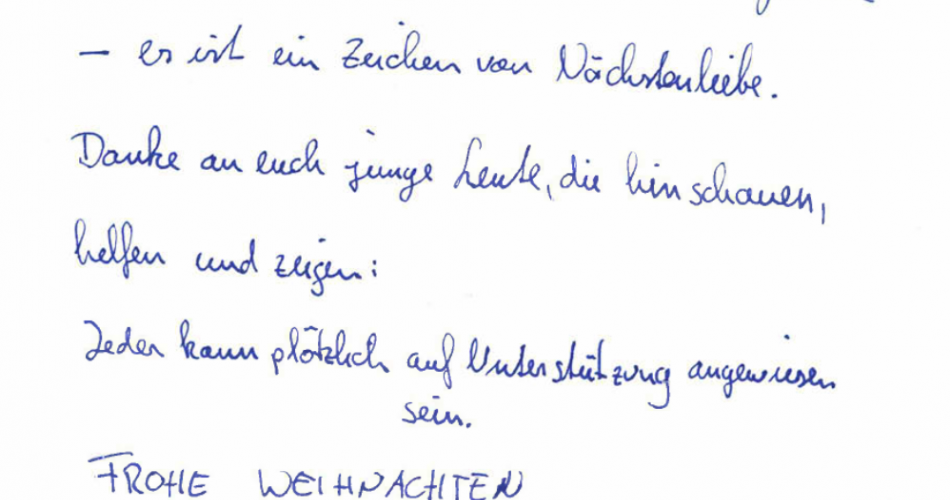 – es ist ein Zeichen von Nächstenliebe.
Danke an euch junge Leute, die hinschauen,
helfen und zeigen:
Jeder kann plötzlich auf Unterstützung angewiesen
sein.
FROHE WEIHNACHTEN